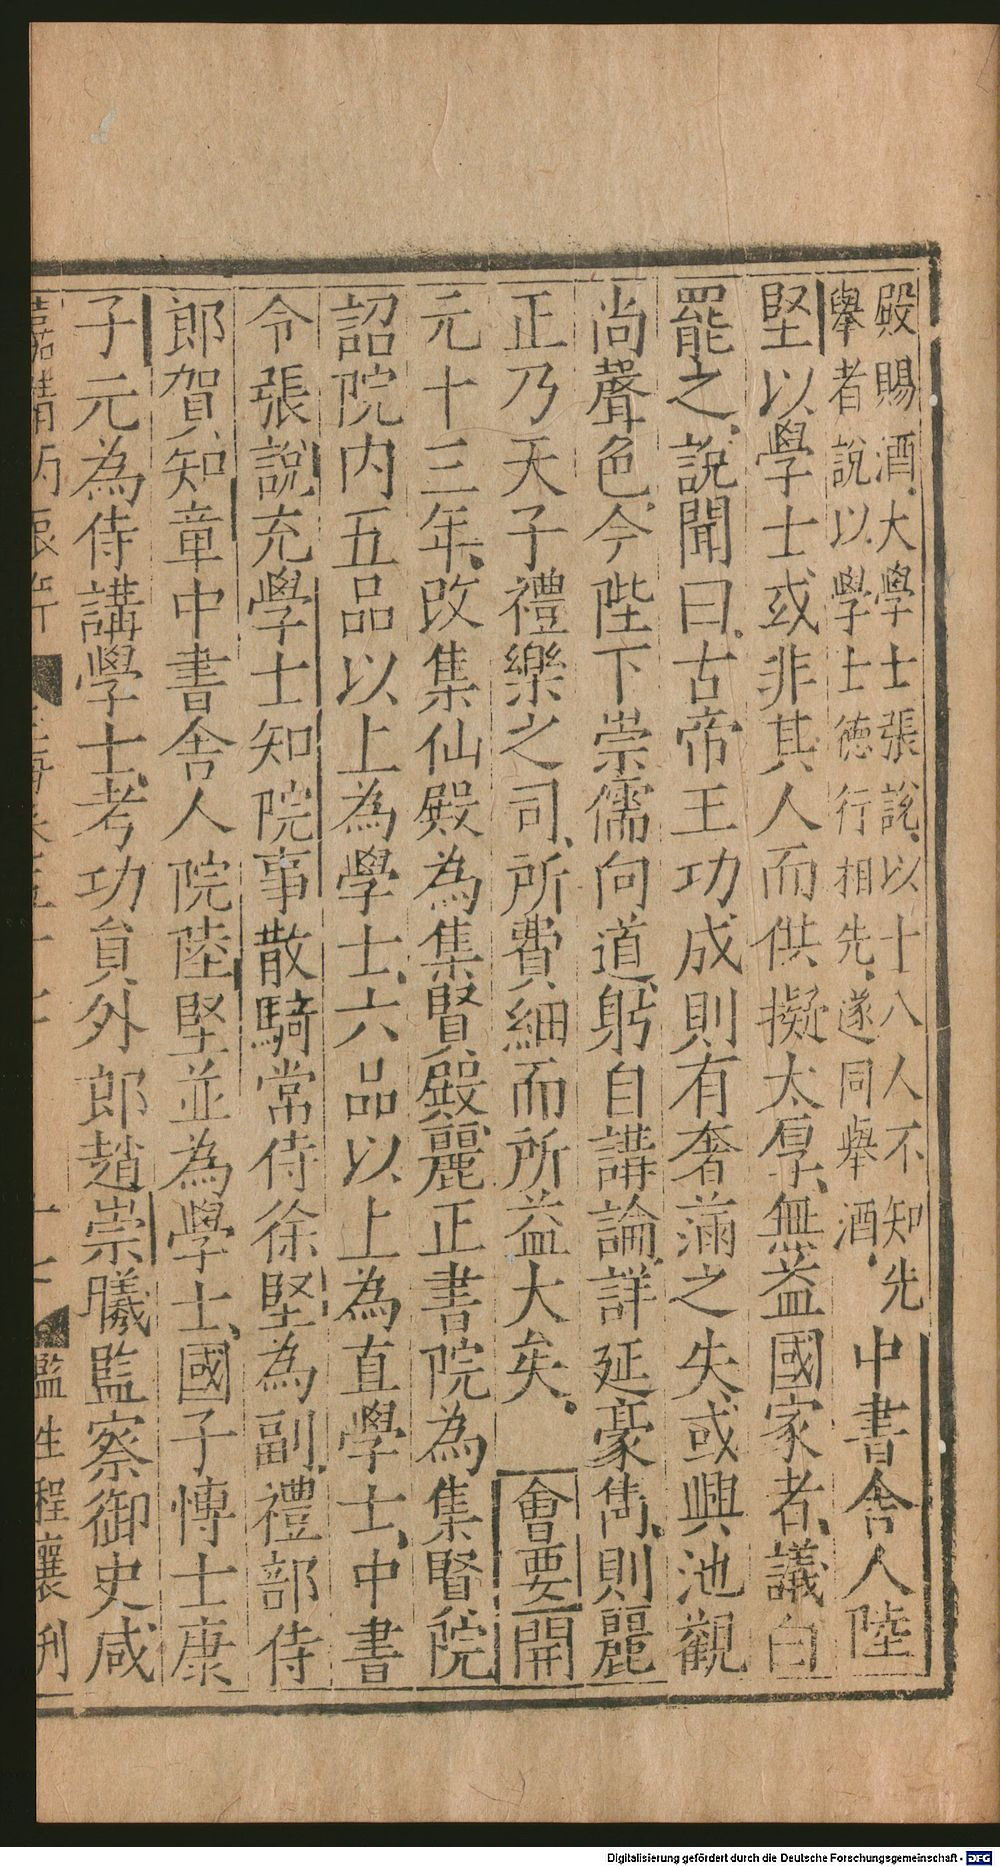 殿賜酒大學士張說以十八人不知先
舉者說以學士德行相先遂同舉酒
中書舍人陸
堅以學士或非其人而供擬太厚無益國家者議白
罷之說聞曰古帝王功成則有奢滿之失或興池觀
尚聲色今陛下崇儒向道躬自講論詳延豪雋則麗
正乃天子禮樂之司所費細而所益大矣 會要開
元十三年改集仙殿為集賢殿麗正書院為集賢院
詔院内五品以上為學士六品以上為直學士中書
令張說充學士知院事散騎常侍徐堅為副禮部侍
郎賀知章中書舍人院陸堅並為學士國子博士康
子元為侍講學士考功員外郎趙崇曦監察御史咸
監生程襄刋
Digitalisierung gefördert durch die Deutsche Forschungsgemeinschaft - DFG